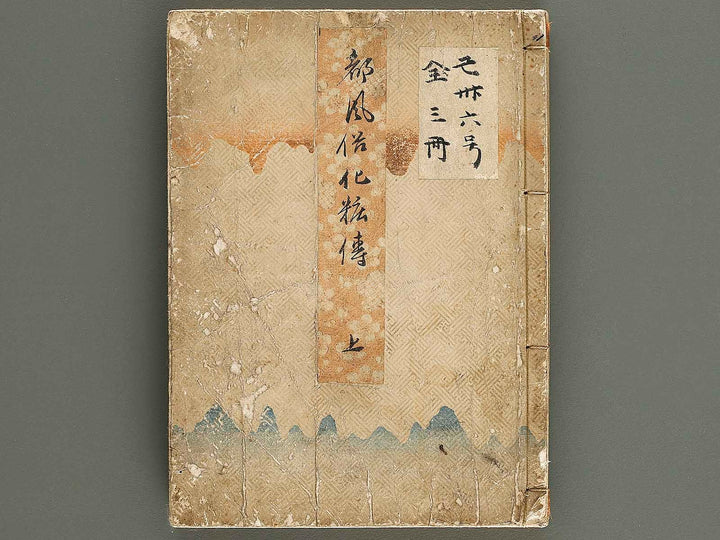 都風俗化粧傳 上
卅六号
全三冊